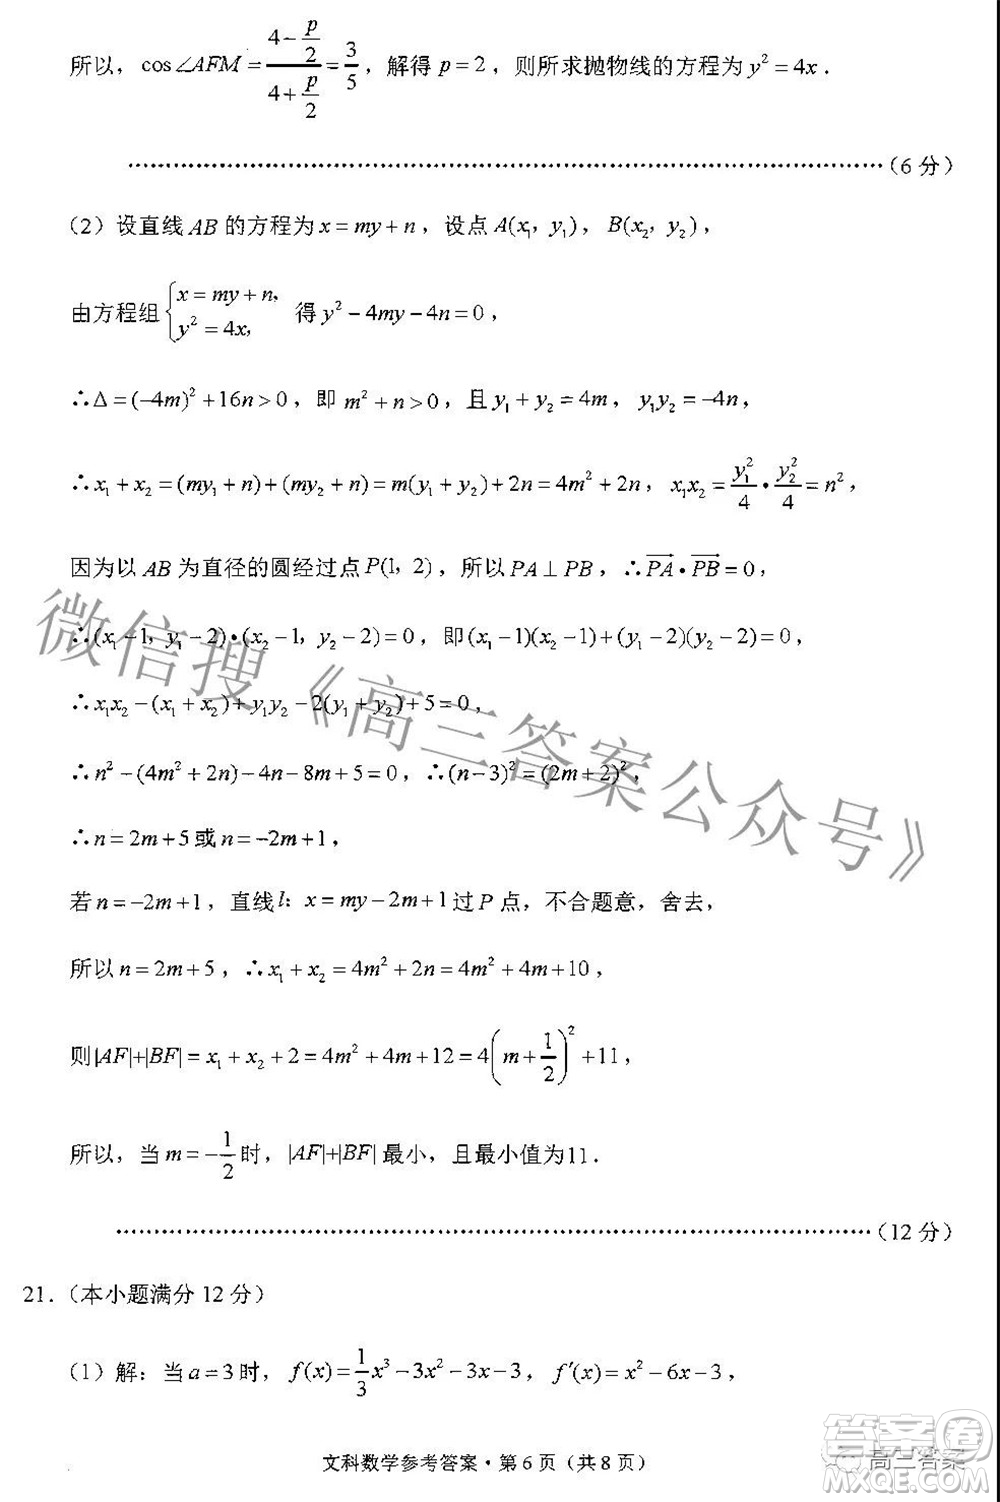 所以，cos∠AFM=(4−p/2)/(4+p/2)=3/5，解得 p=2，则所求抛物线的方程为 y²=4x．
……………………………………（6 分）
（2）设直线 AB 的方程为 x=my+n，设点 A(x₁，y₁)，B(x₂，y₂)，
由方程组{x=my+n，y²=4x， 得 y²−4my−4n=0，
∴Δ=(−4m)²+16n>0，即 m²+n>0，且 y₁+y₂=4m，y₁y₂=−4n，
∴x₁+x₂=(my₁+n)+(my₂+n)=m(y₁+y₂)+2n=4m²+2n，x₁x₂=y₁²/4•y₂²/4=n²，
因为以 AB 为直径的圆经过点 P(1，2)，所以 PA⊥PB，∴PA•PB=0，
∴(x₁−1，y₁−2)•(x₂−1，y₂−2)=0，即(x₁−1)(x₂−1)+(y₁−2)(y₂−2)=0，
∴x₁x₂−(x₁+x₂)+y₁y₂−2(y₁+y₂)+5=0，
∴n²−(4m²+2n)−4n−8m+5=0，∴(n−3)²=(2m+2)²，
∴n=2m+5 或 n=−2m+1，
若 n=−2m+1，直线 l：x=my−2m+1 过 P 点，不合题意，舍去，
所以 n=2m+5，∴x₁+x₂=4m²+2n=4m²+4m+10，
则|AF|+|BF|=x₁+x₂+2=4m²+4m+12=4(m+1/2)²+11，
所以，当 m=−1/2 时，|AF|+|BF| 最小，且最小值为11．
……………………………………（12 分）
21．（本小题满分 12 分）
（1）解：当 a=3 时，f(x)=1/3x³−3x²−3x−3，f′(x)=x²−6x−3，
文科数学参考答案·第 6 页（共 8 页）
微信搜《高三答案公众号》
高三答案
答案圈
MXQE.COM